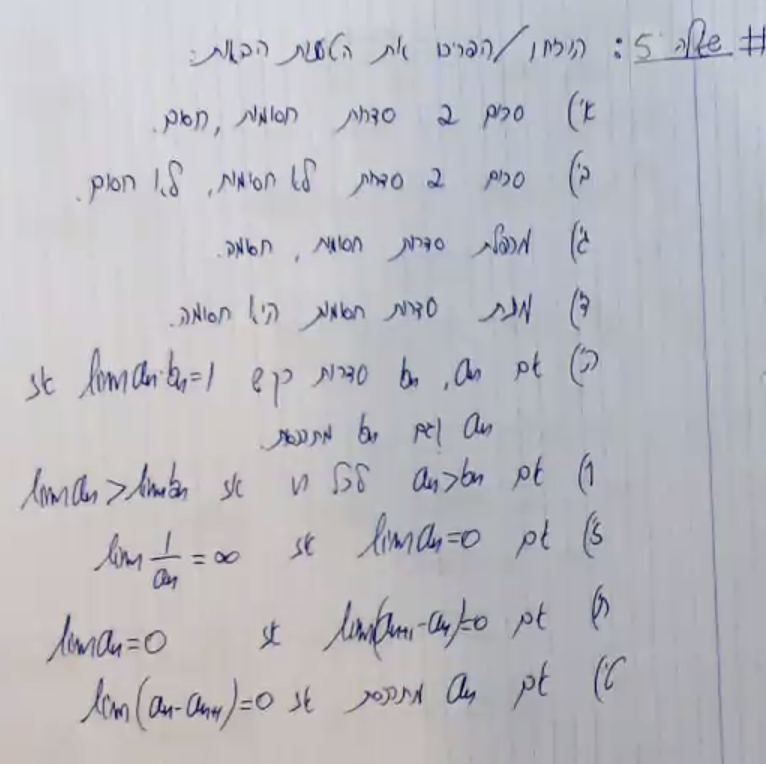 # שאלה 5: הוכיחו/הפריכו את הטענות הבאות:
א') סכום 2 סדרות חסומות, חסום.
ב') סכום 2 סדרות לא חסומות, לא חסום.
ג') מכפלת סדרות חסומות, חסומה.
ד') מנת סדרות חסומות היא חסומה.
ה') אם an, bn סדרות כך ש lim an·bn=1 אז
an וגם bn מתכנסות.
ו) אם an>bn לכל n אז lim an > lim bn
ז') אם lim an=0 אז lim 1/an = ∞
ח) אם lim(an+1-an)=0 אז lim an=0
ט') אם an מתכנסת אז lim(an-an+1)=0